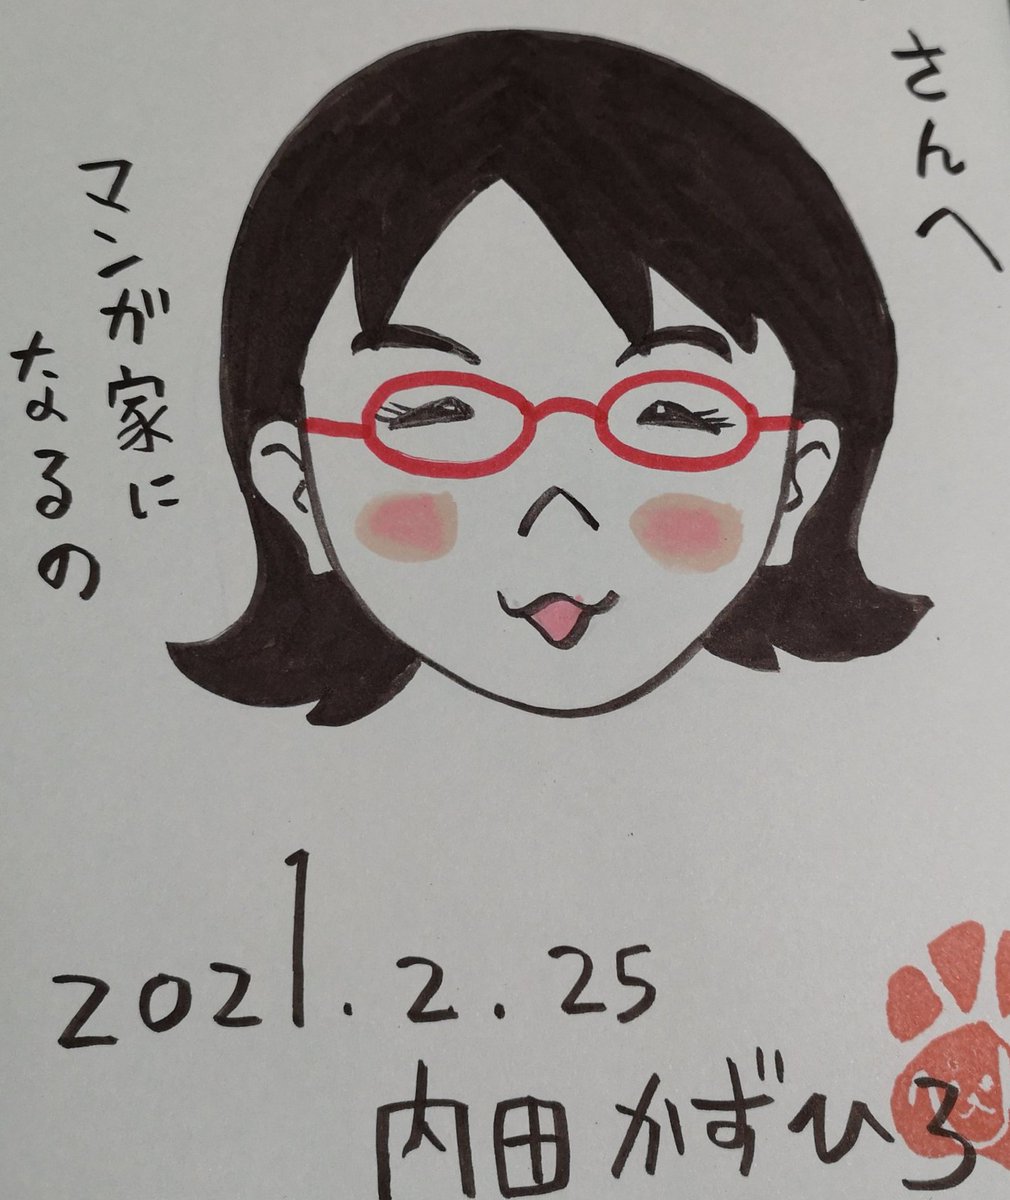 さんへ
マンガ家に
なるの
2021.2.25
内田かずひろ